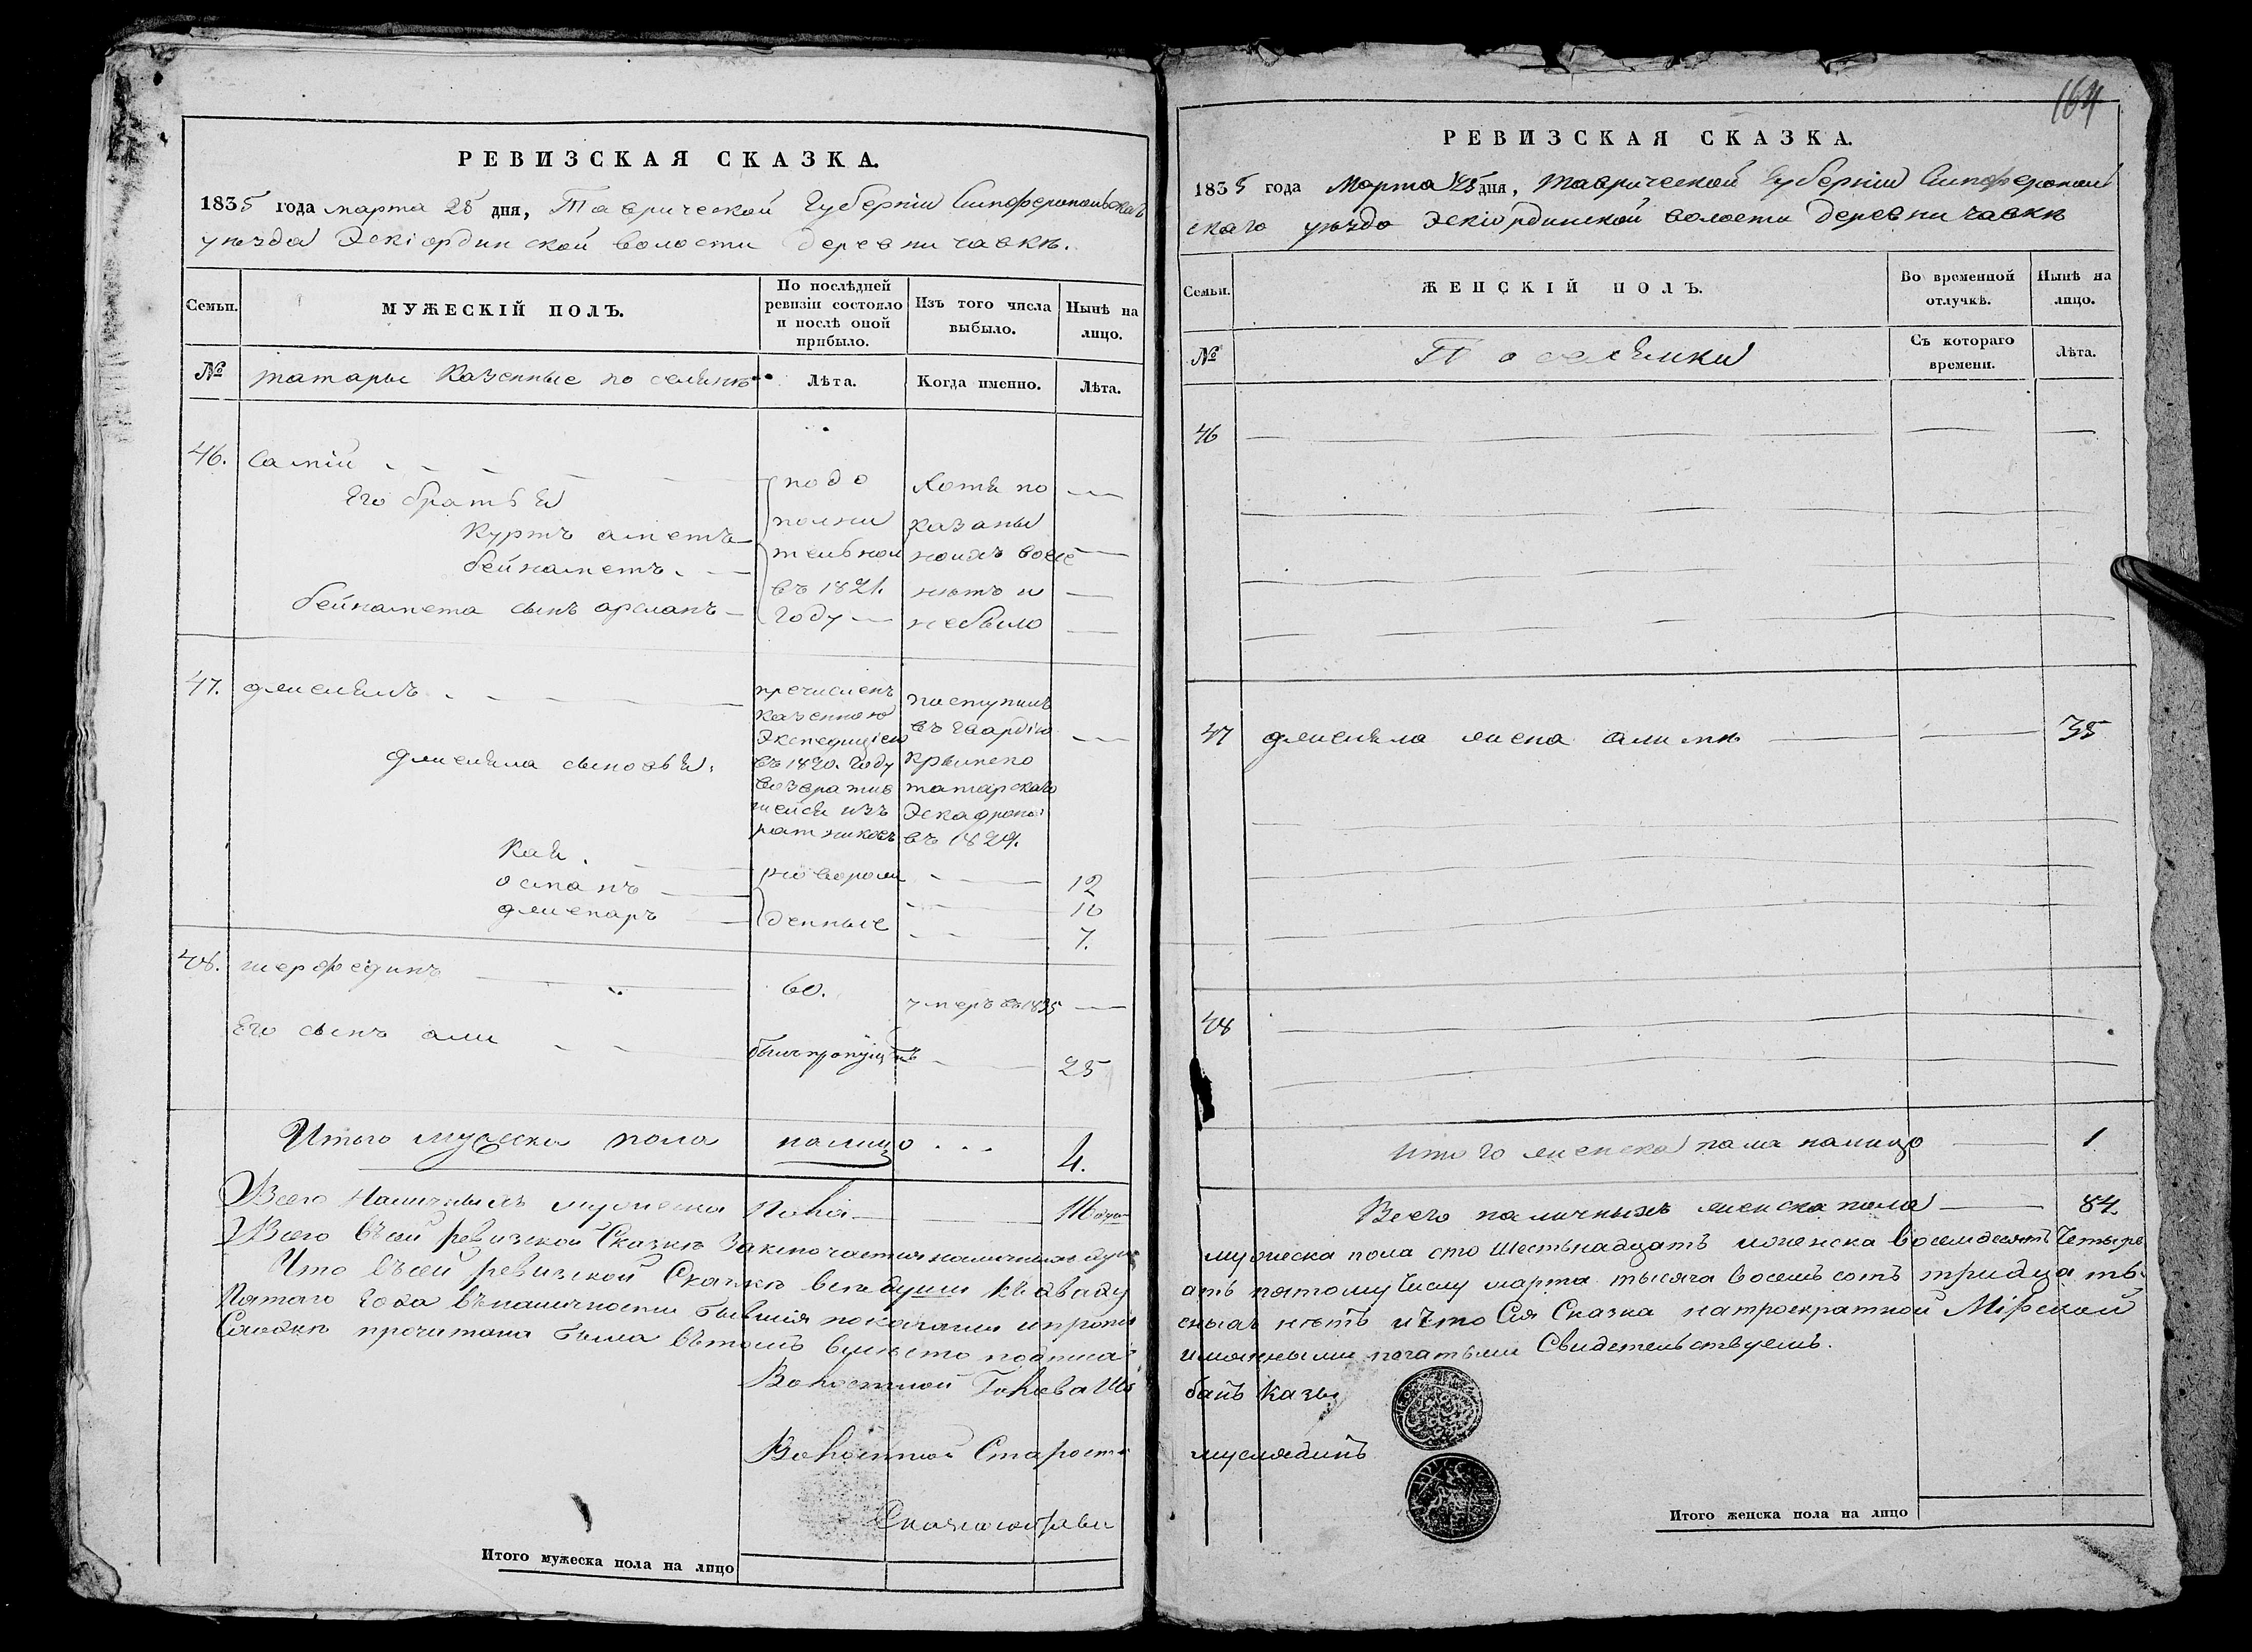 РЕВИЗСКАЯ СКАЗКА.
1835 года марта 25 дня, Таврической Губерніи Симферопольскаго
уѣзда Эскіординской волости деревни чавкѣ.
Семьи.
МУЖЕСКІЙ ПОЛЪ.
По послѣдней ревизіи состояло и послѣ оной прибыло.
Изъ того числа выбыло.
Нынѣ на лицо.
№
татары Казенные поселяне
Лѣта.
Когда именно.
Лѣта.
46.
Его братья
Куртъ аметъ
бейнаметъ
бейнамета сынъ арсланъ
подо
полни
тельной
въ 1821.
году
Хотя по
казаны
но
нѣтъ и
небыло
47.
сыновья.
пречисленъ
казенною
Экспедиціею
въ 1820. Году
возратив
шейся изъ
ратниковъ
поступилъ
въ Гвардію
Крымско
татарскаго
Эскадрона
въ 1829.
Кая.
османъ
джепаръ
новорож
денные
12
10
7.
48.
шерфединъ
60.
умеръ въ 1835
Его сынъ али
былъ пропущенъ
25
Итого мужеска пола на лицо . . .
4.
Всего Наличныхъ мужеска пола
116 душ
Всего въ сей ревизской Сказкѣ Заключается наличныхъ душъ
Что въ сей ревизской Сказкѣ все души къ двадц
Пятаго Года въ наличности бывшія показаны и пропи
Сходкѣ прочитана была въ томъ вмѣсто подписа
Волостной Голова Ша
Волостной Староста
Итого мужеска пола на лицо
164
РЕВИЗСКАЯ СКАЗКА.
1835 года Марта 25 дня, Таврической Губерніи Симферополь
скаго уѣзда Эскіординской волости деревни чавкѣ
Семьи.
ЖЕНСКІЙ ПОЛЪ.
Во временной отлучкѣ.
Нынѣ на лицо.
№
Поселянки
Съ котораго времени.
Лѣта.
46
47
жена
35
48
Итого женска пола налицо
1
Всего наличныхъ женска пола
84.
мужеска пола сто Шестьнадцать и женска Восемдесятъ Четыре
ать пятому Числу марта тысяча восемь сотъ тридцать
сныхъ нѣтъ и что Сія Сказка на троекратной Мірской
имянными печатьми Свидетельствуемъ.
банъ Казы
муслядинъ
Итого женска пола на лицо